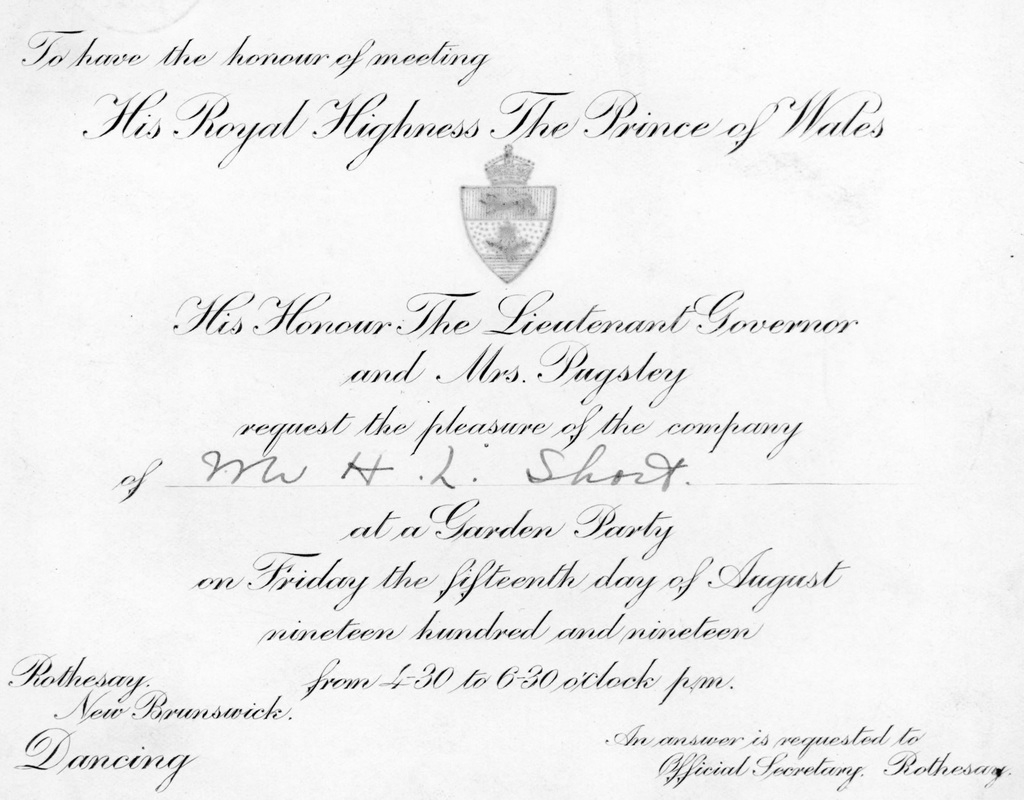 To have the honour of meeting
His Royal Highness The Prince of Wales
His Honour The Lieutenant Governor
and Mrs. Pugsley
request the pleasure of the company
of Mr H. L. Short.
at a Garden Party
on Friday the fifteenth day of August
nineteen hundred and nineteen
from 4-30 to 6-30 o'clock p.m.
Rothesay.
New Brunswick.
Dancing
An answer is requested to
Official Secretary. Rothesay.